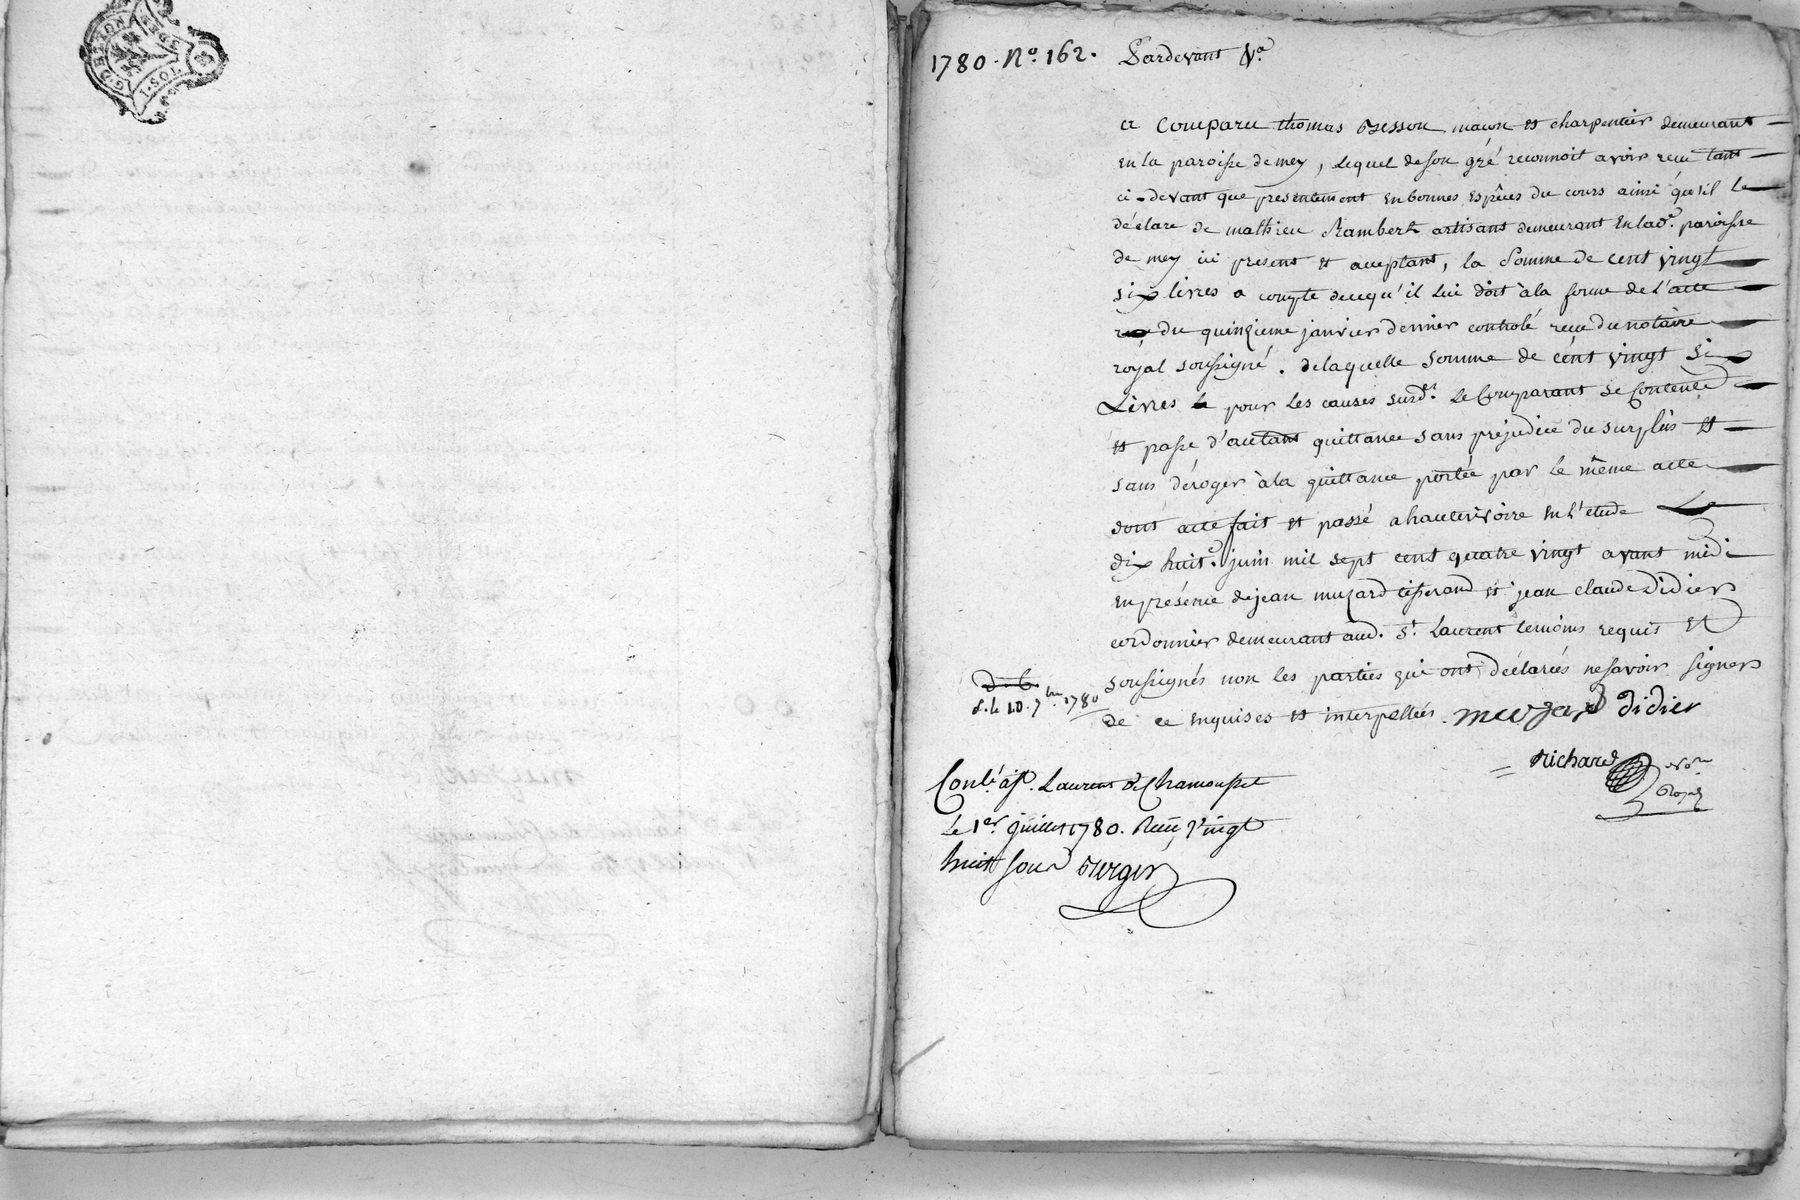 1780. No. 162. Pardevant &a.
a Comparu thomas Besson maçon et charpentier demeurant
en la paroisse de mey, lequel de son gré reconnoit avoir reçu tant
ci-devant que presentement en bonnes espêces du cours ainsi qu'il le
déclare de mathieu Rambert artisant demeurant en lade. paroisse
de mey ici present et acceptant, la Somme de cent vingt
six livres a compte de ce qu'il lui doit à la forme de l'acte
du quinzieme janvier dernier controlé reçu du notaire
royal soussigné. de laquelle somme de cent vingt six
Livres pour les causes susd. le Comparant se Contente
et passe d'autant quittance sans prejudice du surplus et
sans déroger à la quittance portée par le même acte
dont acte fait et passé a hauterivoire en l'etude Le
dix huite. juin mil sept cent quatre vingt avant midi
en présence de jean muzard tisserand et jean claude Didier
cordonnier demeurant aud. St. Laurent temoins requis et
soussignés non les parties qui ont déclarées ne savoir signer
de ce enquises et interpellées. muzard didier
d. le 10. 7bre. 1780
Richard Nore Royal
Conlé. à St. Laurent de Chamousset
Le 1er. juillet 1780. Reçu vingt
huit sous Berger
G. DE LYON
1. SOL